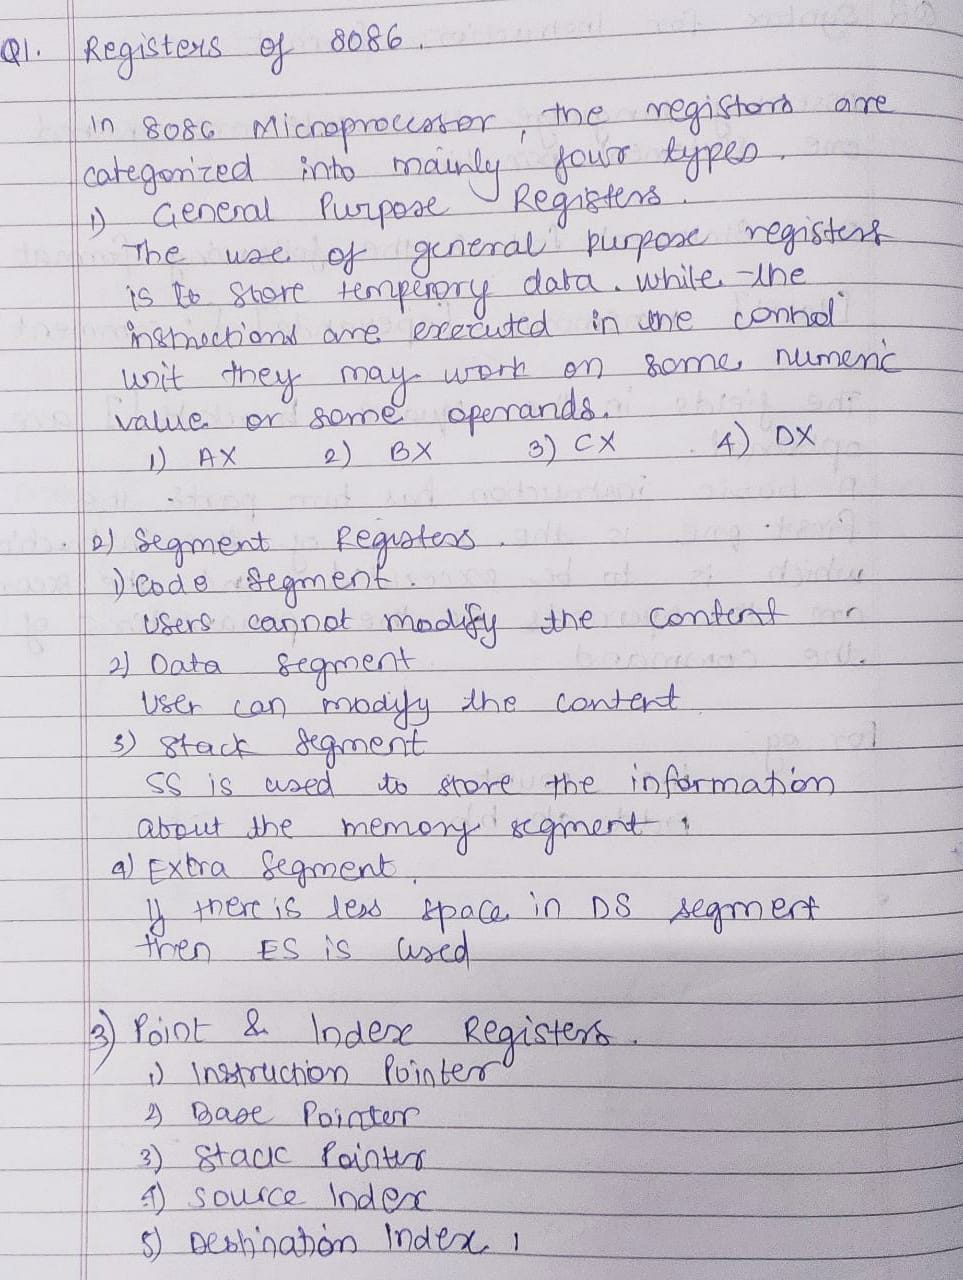 Q1. Registers of 8086.
In 8086 Microprocessor, the registers are
categorized into mainly four types.
1) General Purpose Registers.
The use of general purpose registers
is to store temperory data. while the
instructions are executed in the control
unit they may work on some numeric
value or some operands.
1) AX 2) BX 3) CX 4) DX
2) Segment Registers.
1) Code Segment.
Users cannot modify the content
2) Data segment
User can modify the content
3) Stack Segment
SS is used to store the information
about the memory segment.
4) Extra Segment.
If there is less space in DS segment
then ES is used
3) Point & Index Registers.
1) Instruction Pointer
2) Base Pointer
3) Stack Pointer
4) Source Index
5) Destination Index.